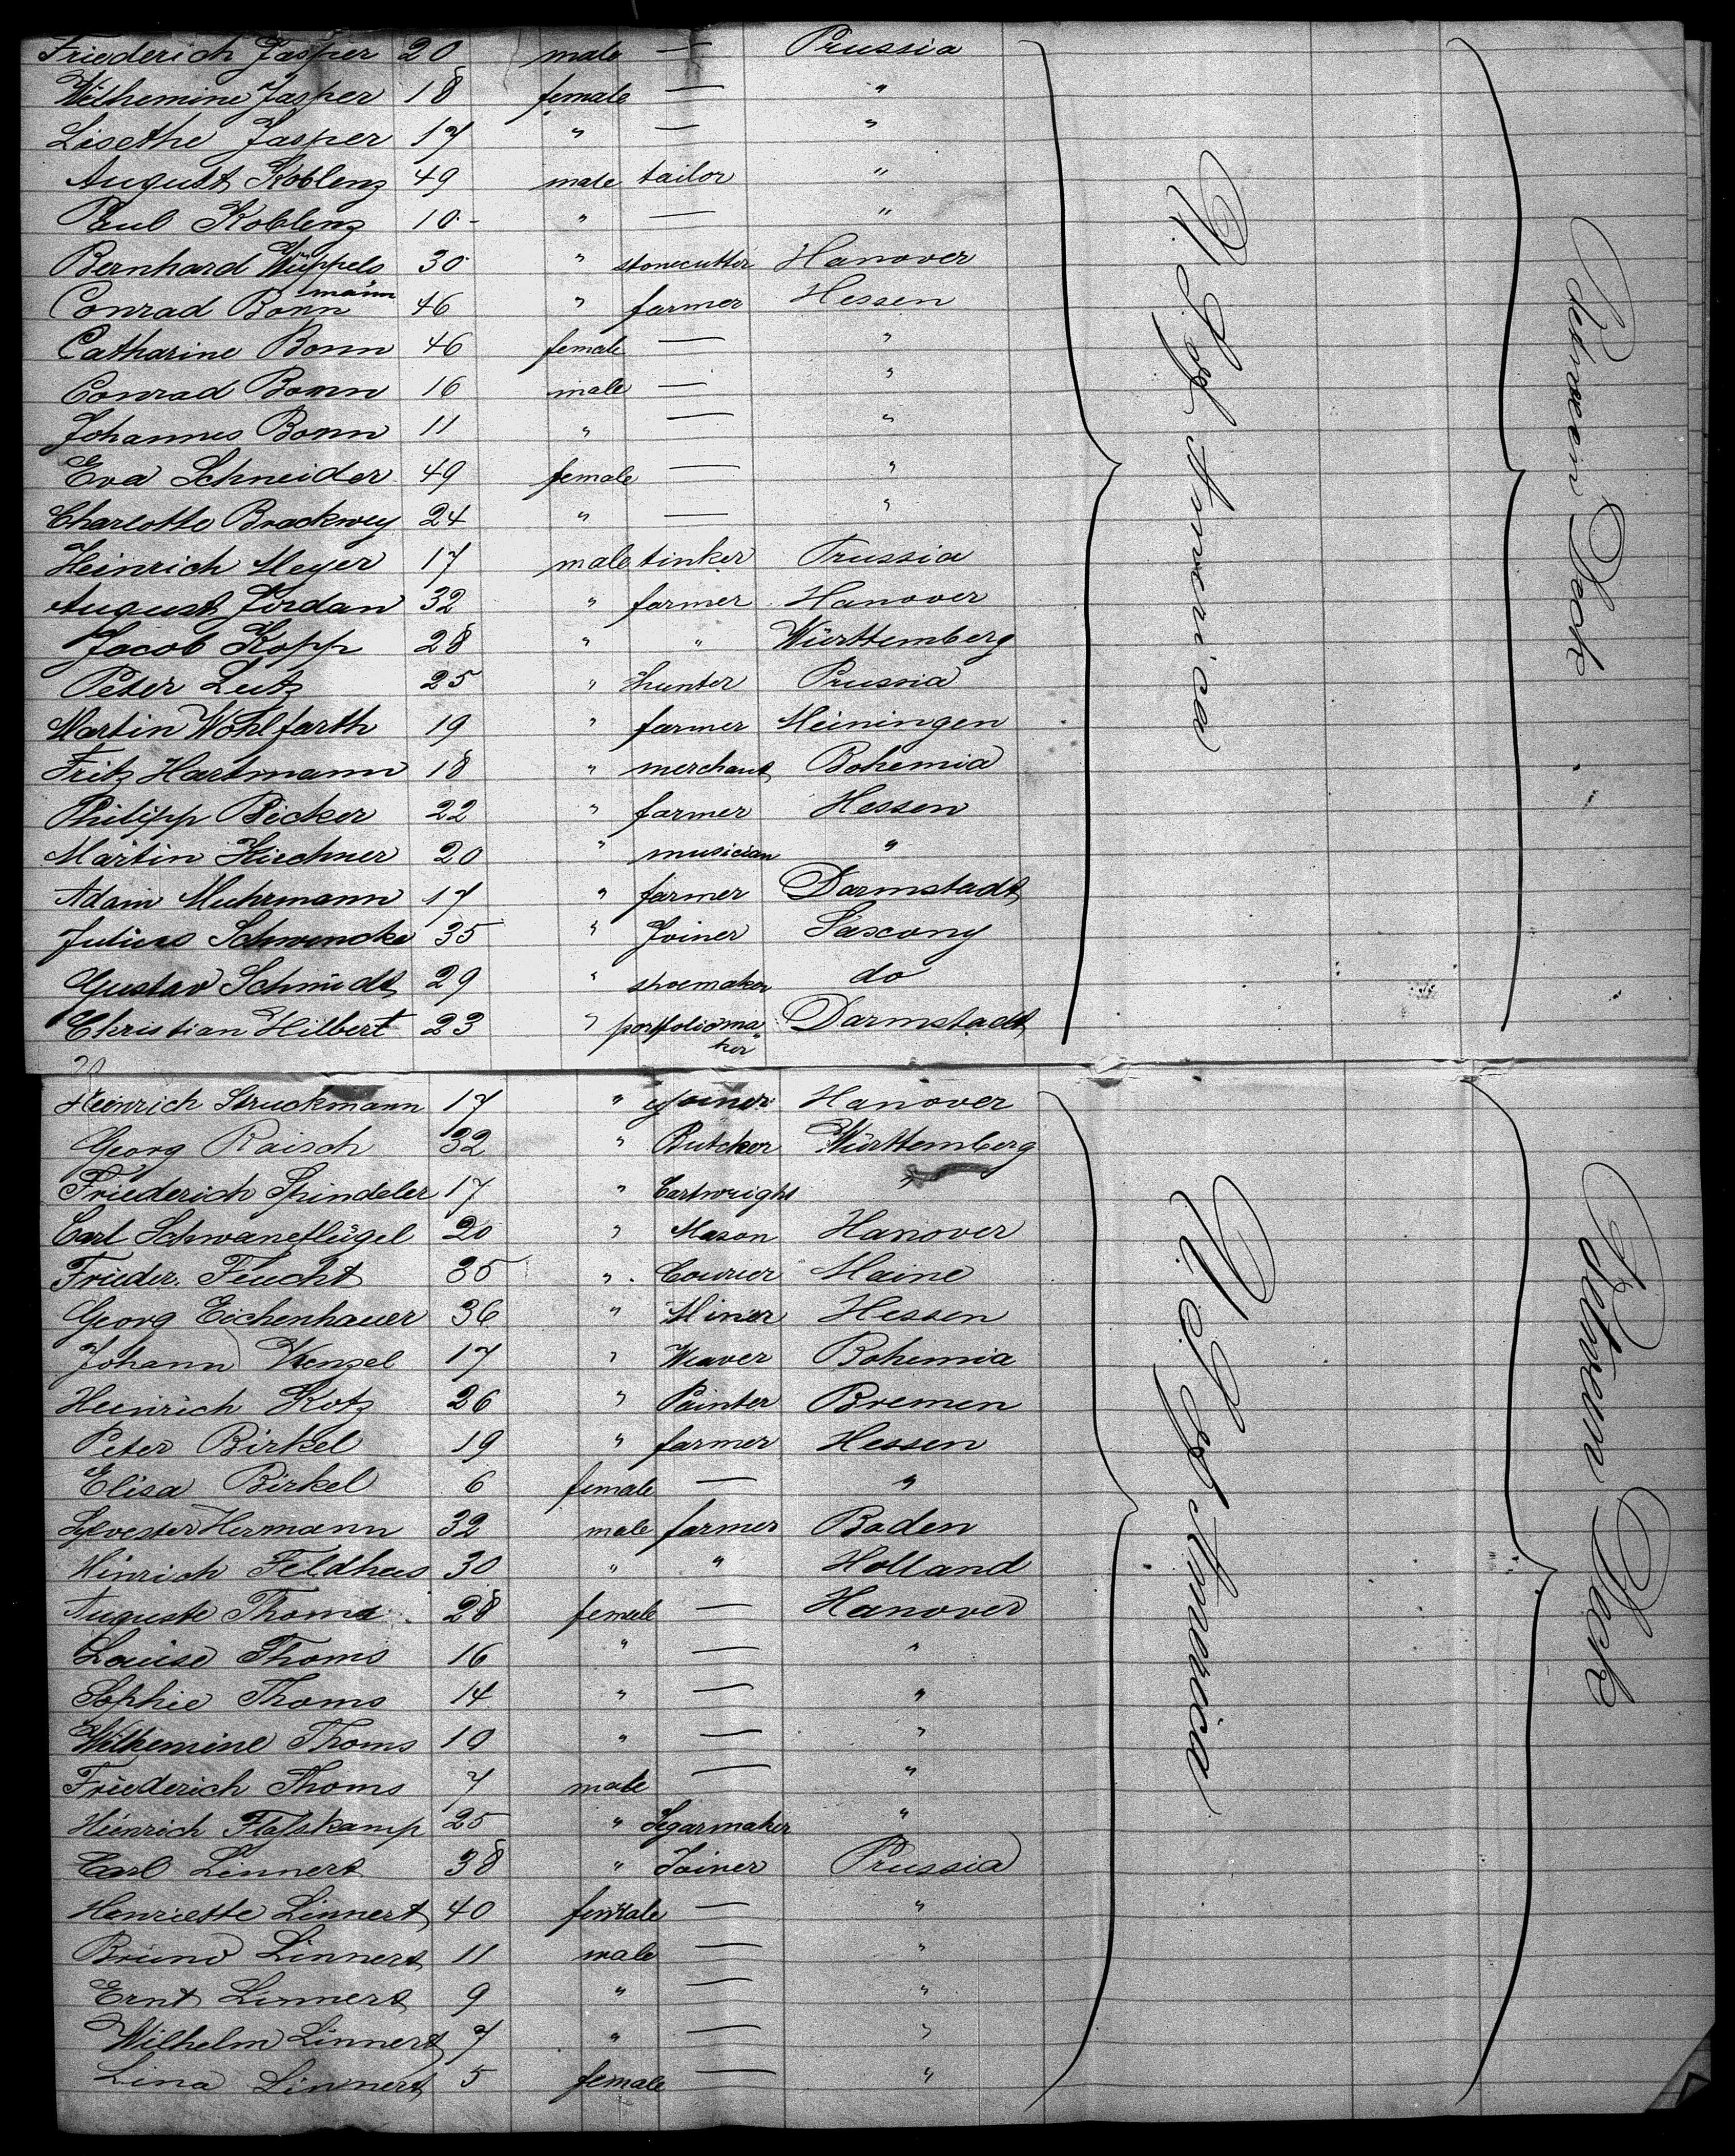 Friederich Jasper 20 male — Prussia
Wilhemine Jasper 18 female — "
Lisethe Jasper 17 " — "
August Koblenz 49 male tailor "
Paul Koblenz 10 " — "
Bernhard Wüppels 30 " stonecutter Hanover
mann
Conrad Bonn 46 " farmer Hessen
Catharine Bonn 46 female — "
Conrad Bonn 16 male — "
Johannes Bonn 11 " — "
Eva Schneider 49 female — "
Charlotte Brackwey 24 " — "
Heinrich Meyer 17 male tinker Prussia
August Jordan 32 " farmer Hanover
Jacob Kopp 28 " " Württemberg
Peter Lutz 25 " hunter Prussia
Martin Wohlfarth 19 " farmer Meiningen
Fritz Hartmann 18 " merchant Bohemia
Philipp Bicker 22 " farmer Hessen
Martin Kirchner 20 " musician "
Adam Muhrmann 17 " farmer Darmstadt
Julius Schwencke 35 " Joiner Saxony
Gustav Schmidt 29 " shoemaker do
Christian Hilbert 23 " portfolioma Darmstadt
ker
U. S. of America
Between Deck
Heinrich Struckmann 17 " Joiner Hanover
Georg Raisch 32 " Butcher Württemberg
Friederich Spindeler 17 " Cartwright "
Carl Schwaneflügel 20 " Mason Hanover
Frieder. Feucht 35 " Courier Maine
Georg Eichenhauer 36 " Miner Hessen
Johann Wenzel 17 " Weaver Bohemia
Heinrich Kotz 26 " Painter Bremen
Peter Birkel 19 " farmer Hessen
Elisa Birkel 6 female — "
Sylvester Hermann 32 male farmer Baden
Hinrich Feldhus 30 " " Holland
Auguste Thoms 28 female — Hanover
Louise Thoms 16 " — "
Sophie Thoms 14 " — "
Wilhemine Thoms 10 " — "
Friederich Thoms 7 male — "
Heinrich Flasskamp 25 " Segarmaker "
Carl Linnert 38 " Joiner Prussia
Henriette Linnert 40 female — "
Bruno Linnert 11 male — "
Ernt Linnert 9 " — "
Wilhelm Linnert 7 " — "
Lina Linnert 5 female — "
U. S. of America
Between Deck